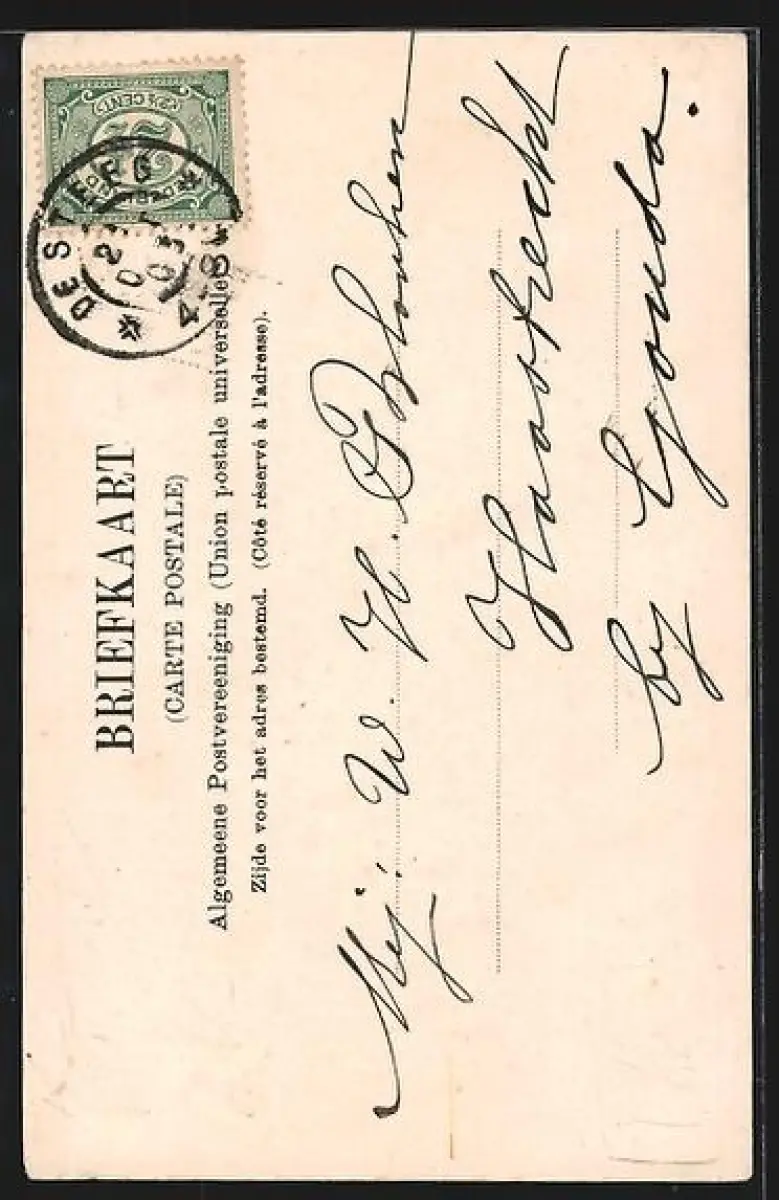 BRIEFKAART
(CARTE POSTALE)
Algemeene Postvereeniging (Union postale universelle)
Zijde voor het adres bestemd. (Côté réservé à l'adresse).
(2½ CENT)
DE STEEG
4-8
Mej. W. H. Blanken
Haastrecht
by Gouda.